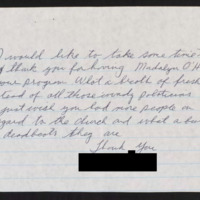 I would like to take some time
thank you for having Madalyn O'H
your program. What a breath of fresh
stead of all those windy politicians.
just wish you had more people on
gard to the church and what a bu
deadbeats they are
Thank You